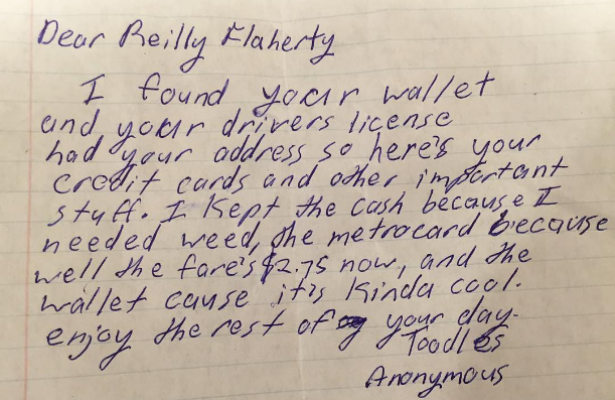 Dear Reilly Flaherty
I found your wallet
and your drivers license
had your address so here's your
credit cards and other important
stuff. I kept the cash because I
needed weed, the metrocard because
well the fare's $2.75 now, and the
wallet cause it's kinda cool.
enjoy the rest of your day.
Toodles
Anonymous